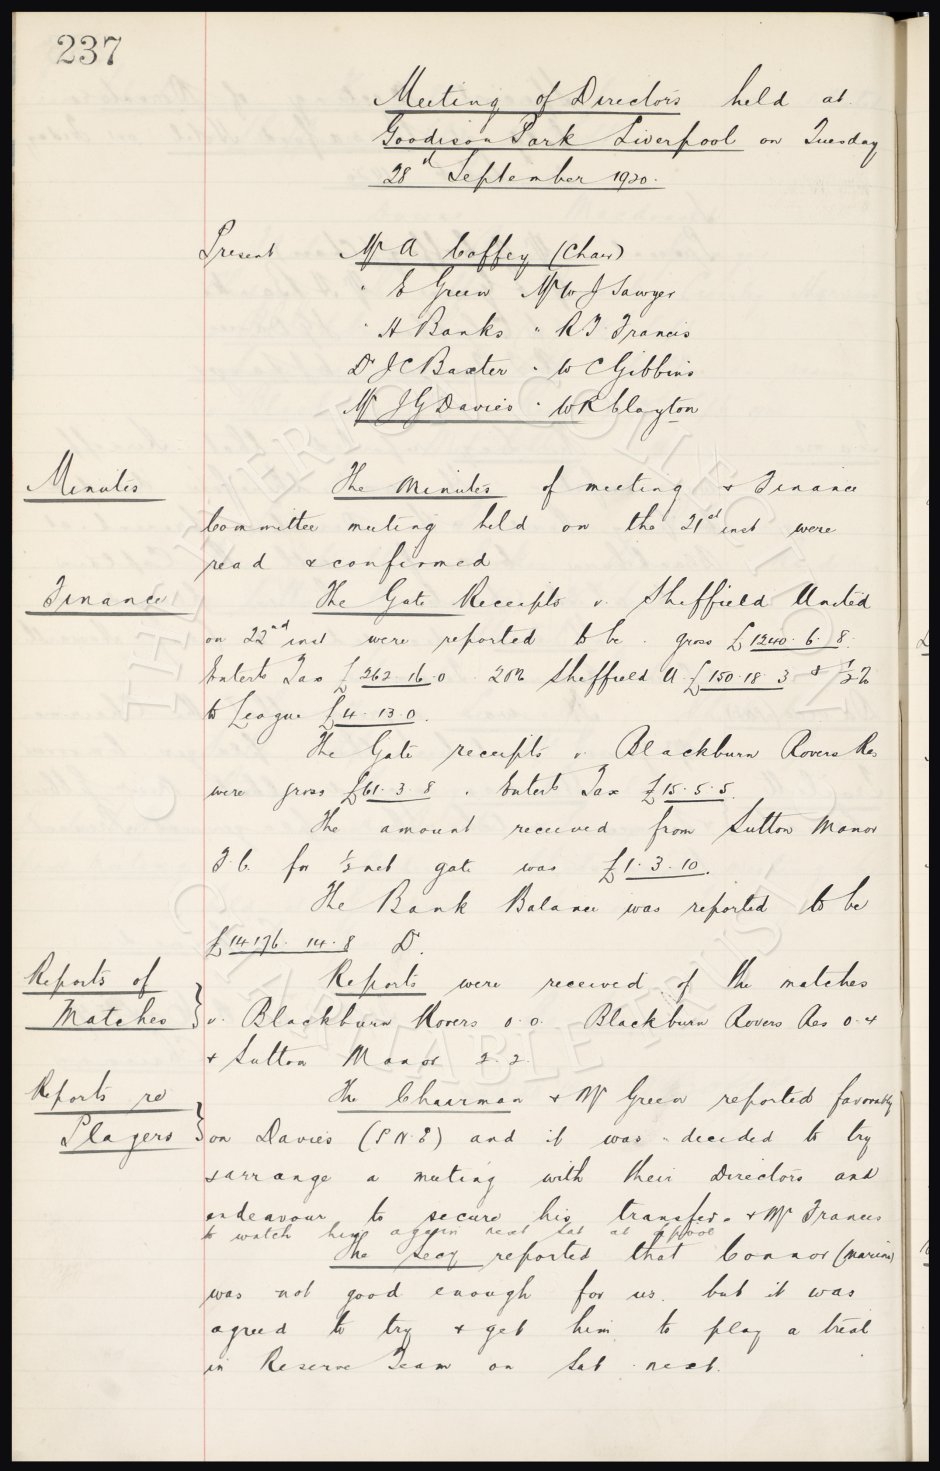 237
Meeting of Directors held at
Goodison Park Liverpool on Tuesday
28th September 1920.
Present Mr A Coffey (Chair)
" E Green Mr W J Sawyer
" H Banks " R T Francis
Dr J C Baxter " W C Gibbins
Mr J G Davies " W R Clayton
Minutes The Minutes of meeting & Finance
Committee meeting held on the 21st inst were
read & confirmed
Finance The Gate Receipts v. Sheffield United
on 22nd inst were reported to be gross £1240. 6. 8.
Entert Tax £262. 16. 0 20% Sheffield U. £150. 18. 3 & ½%
to League £4. 13. 0.
The Gate receipts v Blackburn Rovers Res
were gross £61. 3. 8. Entert Tax £15. 5. 5.
The amount received from Sutton Manor
F.C. for ½ net gate was £1. 3. 10.
The Bank Balance was reported to be
£14176. 14. 8 Dr.
Reports of Reports were received of the matches
Matches } v. Blackburn Rovers 0.0. Blackburn Rovers Res 0.4
& Sutton Manor 2.2.
Reports re The Chairman & Mr Green reported favorably
Players } on Davies (P.N.E) and it was decided to try
& arrange a meeting with their Directors and
endeavour to secure his transfer. & Mr Francis
to watch him again next Sat at L'pool
The Secy reported that Connor (Marine)
was not good enough for us. but it was
agreed to try & get him to play a trial
in Reserve Team on Sat next.